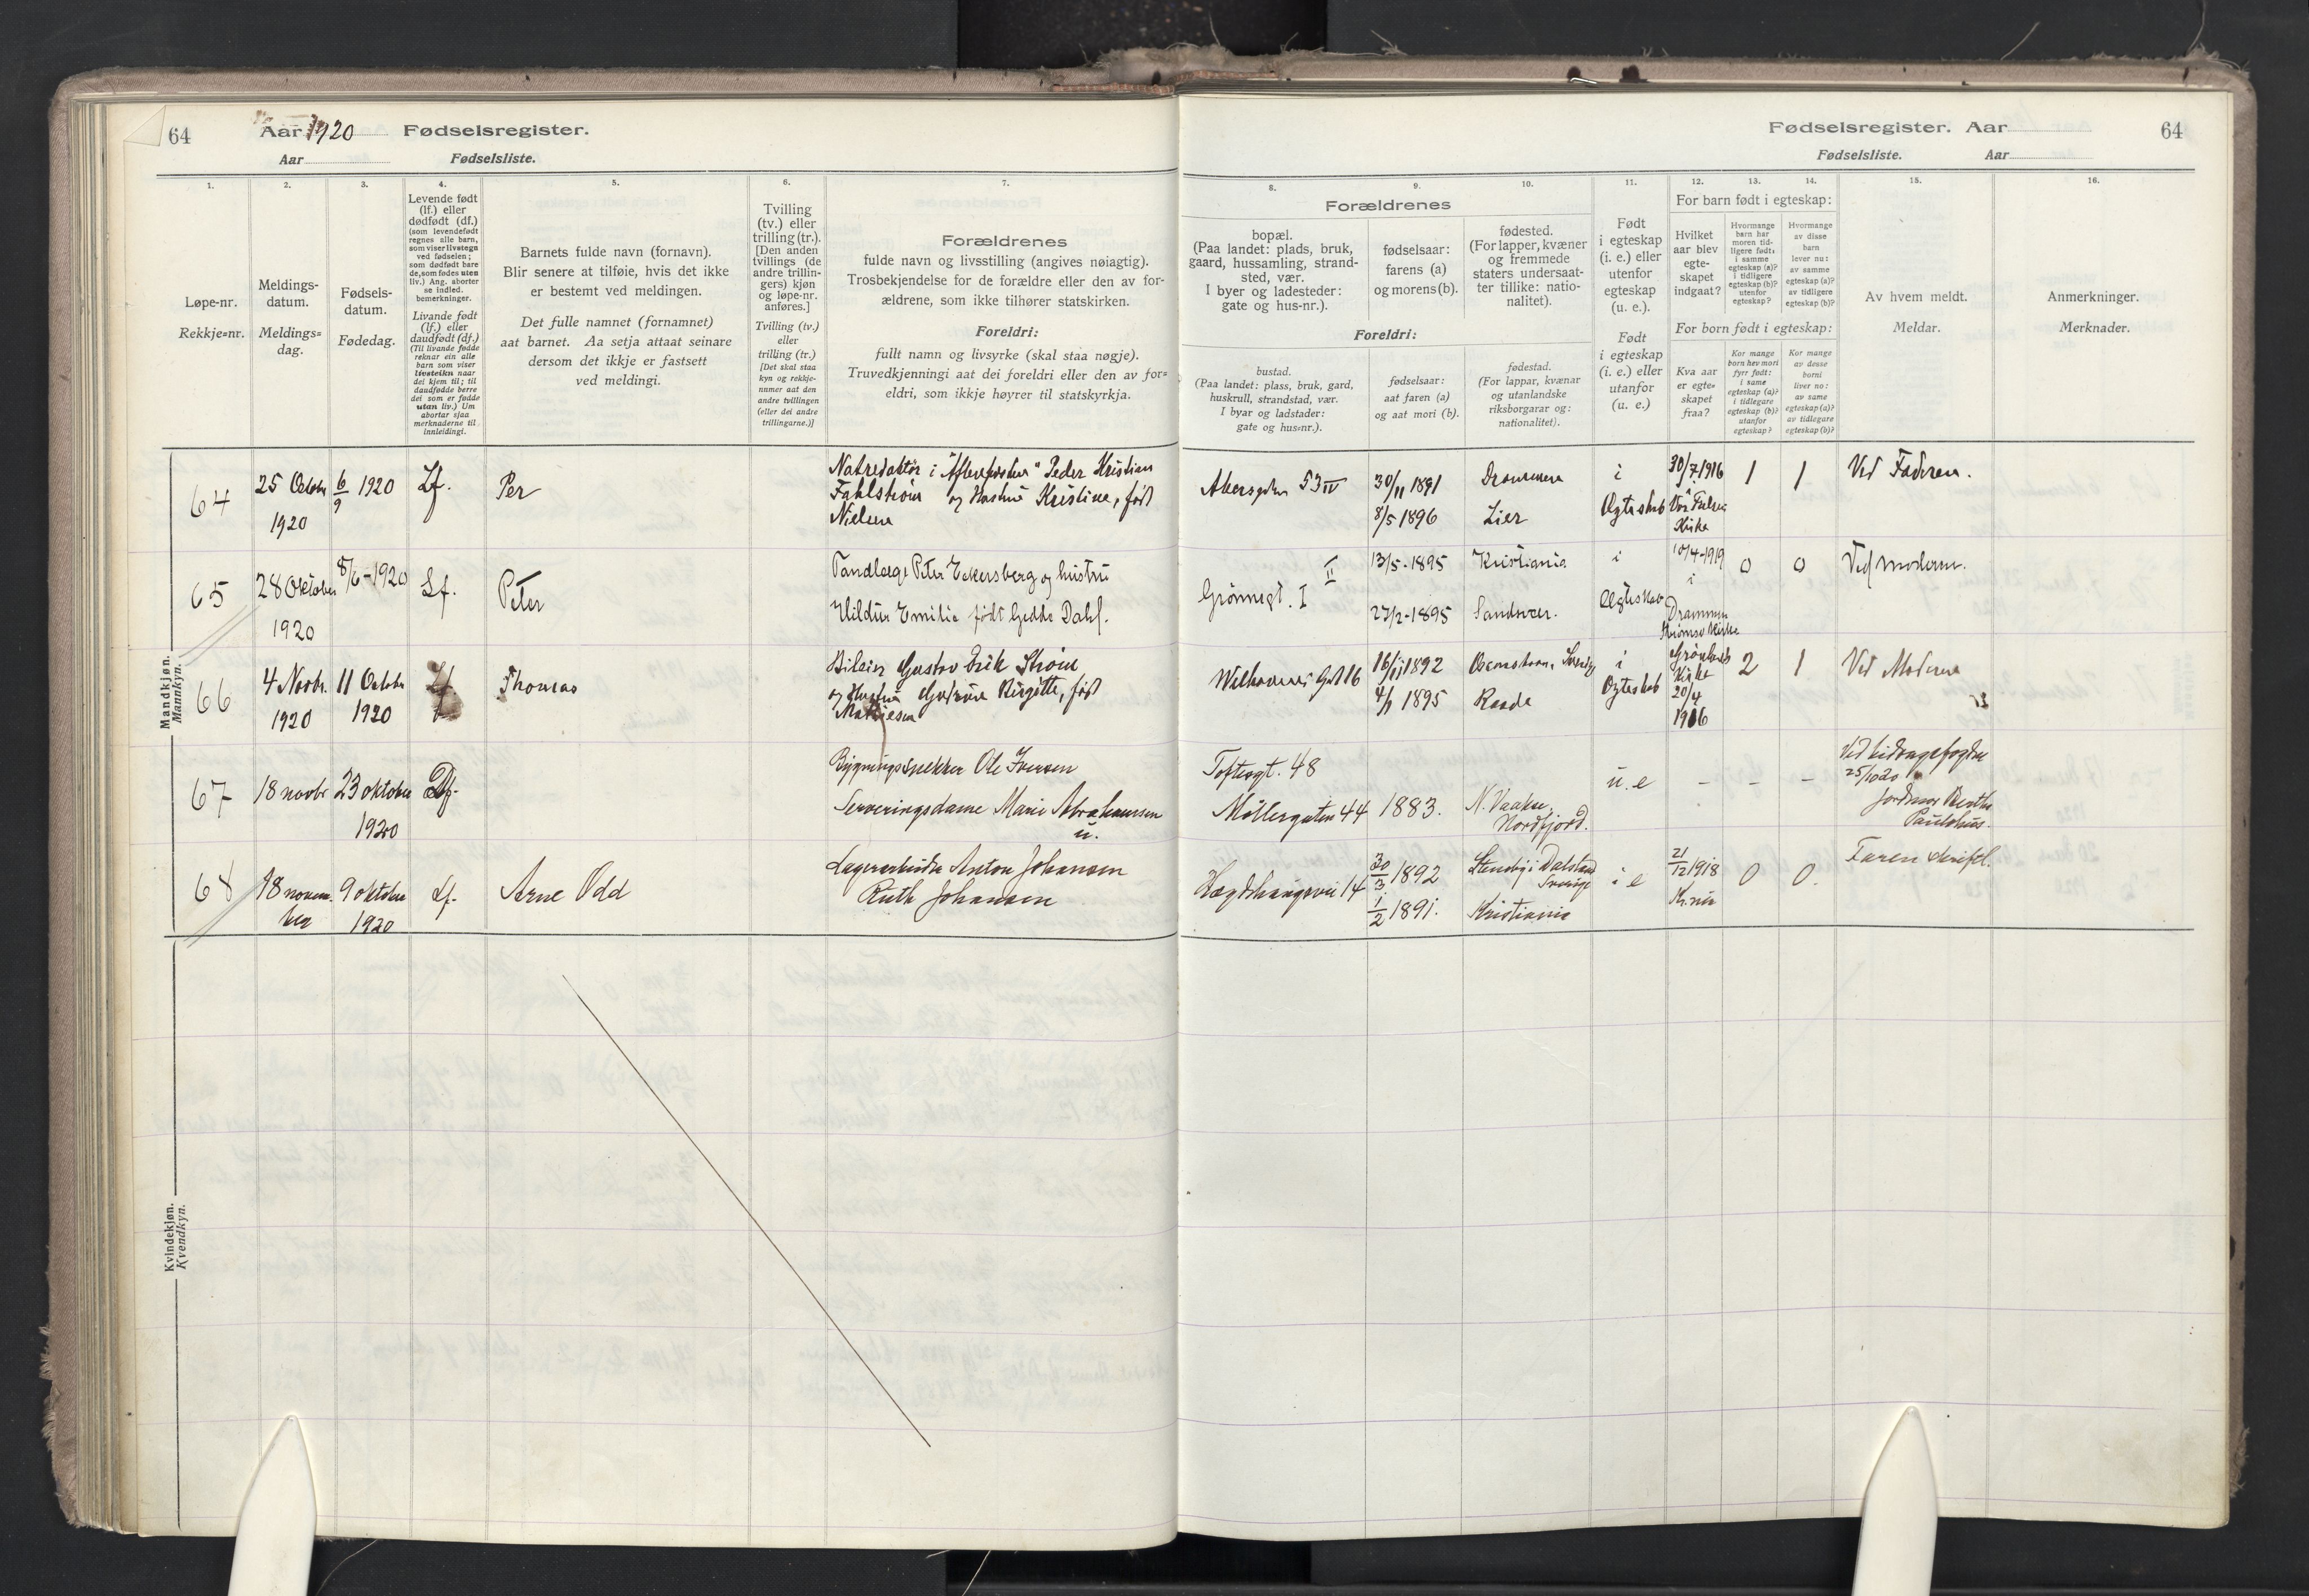 64
Aar 1920 Fødselsregister.
Aar Fødselsliste.
1.
Løpe-nr.
Rekkje=nr.
2.
Meldings-
datum.
Meldings=
dag.
3.
Fødsels-
datum.
Fødedag.
4.
Levende født
(lf.) eller
dødfødt (df.)
(som levendefødt
regnes alle barn,
som viser livstegn
ved fødselen;
som dødfødt bare
de, som fødes uten
liv.) Ang. aborter
se indled.
bemerkninger.
Livande født
(lf.) eller
daudfødt (df.)
(Til livande fødde
reknar ein alle
barn som viser
livsteikn naar
dei kjem til; til
daudfødde berre
dei som er fødde
utan liv.) Um
abortar sjaa
merknaderne til
innleidingi.
5.
Barnets fulde navn (fornavn).
Blir senere at tilføie, hvis det ikke
er bestemt ved meldingen.
Det fulle namnet (fornamnet)
aat barnet. Aa setja attaat seinare
dersom det ikkje er fastsett
ved meldingi.
6.
Tvilling
(tv.) eller
trilling (tr.).
[Den anden
tvillings (de
andre trillin-
gers) kjøn
og løpe-nr.
anføres.]
Tvilling (tv.)
eller
trilling (tr.)
[Det skal staa
kyn og rekkje-
nummer aat den
andre tvillingen
(eller dei andre
trillingarne.)]
7.
Forældrenes
fulde navn og livsstilling (angives nøiagtig).
Trosbekjendelse for de forældre eller den av for-
ældrene, som ikke tilhører statskirken.
Foreldri:
fullt namn og livsyrke (skal staa nøgje).
Truvedkjenningi aat dei foreldri eller den av for=
eldri, som ikkje høyrer til statskyrkja.
Fødselsregister. Aar 64
Fødselsliste. Aar
8.
Forældrenes
bopæl.
(Paa landet: plads, bruk,
gaard, hussamling, strand-
sted, vær.
I byer og ladesteder:
gate og hus-nr.).
Foreldri:
bustad.
(Paa landet: plass, bruk, gard,
huskrull, strandstad, vær.
I byar og ladstader:
gate og hus=nr.).
9.
fødselsaar:
farens (a)
og morens (b).
fødselsaar:
aat faren (a)
og aat mori (b).
10.
fødested.
(For lapper, kvæner
og fremmede
staters undersaat-
ter tillike: natio-
nalitet).
fødestad.
(For lappar, kvænar
og utanlandske
riksborgarar og:
nationalitet).
11.
Født
i egteskap
(i. e.) eller
utenfor
egteskap
(u. e.).
Født
i egteskap
(i. e.) eller
utanfor
(u. e.)
For barn født i egteskap:
12.
Hvilket
aar blev
egte-
skapet
indgaat?
For born født i egteskap:
Kva aar
er egte=
skapet
fraa?
13.
Hvormange
barn har
moren tid-
ligere født:
i samme
egteskap (a)?
i tidligere
egteskap (b)?
utenfor
egteskap?
Kor mange
born hev mori
fyrr født:
i same
egteskap (a)?
i tidlegare
egteskap (b)?
utanfor
egteskap?
14.
Hvormange
av disse
barn
lever nu:
av samme
egteskap (a)?
av tidligere
egteskap (b)?
Kor mange
av desse
borni
liver no:
av same
egteskap (a)?
av tidlegare
egteskap (b)?
15.
Av hvem meldt.
Meldar.
16.
Anmerkninger.
Merknader.
Mandkjøn.
Mannkyn.
64
25 Octobr
1920
6/9 1920
Lf.
Per
Natredaktør i "Aftenposten" Peder Kristian
Fahlstrøm og Hustru Kristine, født
Nielsen
Akersgaten 53 IV
30/11 1891
8/5 1896
Drammen
Lier
i
Egteskab
30/7 1916
i
Vor Frelsers
Kirke
1
1
Ved Faderen.
65
28 Oktober
1920
8/6-1920
Lf.
Peter
Tandlæge Peter Eckersberg og hustru
Hildur Emilie født Gedde Dahl.
Grønnegt. I II
13/5-1895
27/2-1895
Kristiania
Sandsvær.
i
Ægteskab
10/4-1919
i
Drammen
Strømsø Kirke
0
0
Ved moderen.
66
4 Novbr.
1920
11 Octobr
1920
Lf.
Thomas
Bileier Gustav Erik Strøm
og Hustru Gudrun Birgitte, født
Mathiesen
Welhavens Gt 16
16/11 1892
4/1 1895
Raade
i
Egteskab
Grønlands
Kirke
20/4
1916
2
1
Ved Moderen
67
18 novbr
23 oktober
1920
Df.
Bygningssnekker Ole Iversen
Serveringsdame Marie Abrahamsen
u.
Toftesgt. 48
Møllergaten 44
1883.
N. Vaakse,
Nordfjord.
u. e
-
-
-
Ved bidragsfogden
25/10 20
Jordmor Berthe
Paulshus.
68
18 novem-
ber
9 oktober
1920
Lf.
Arne Odd
Lagerarbeider Anton Johansen
Ruth Johansen
Hægdehaugsvei 14
30/3 1892
1/2 1891.
Stenbyi Dalsland
Sverige
Kristiania
i e
21/12 1918
Kr.nia
0
0.
Faren skriftl.
Kvindekjøn.
Kvendkyn.